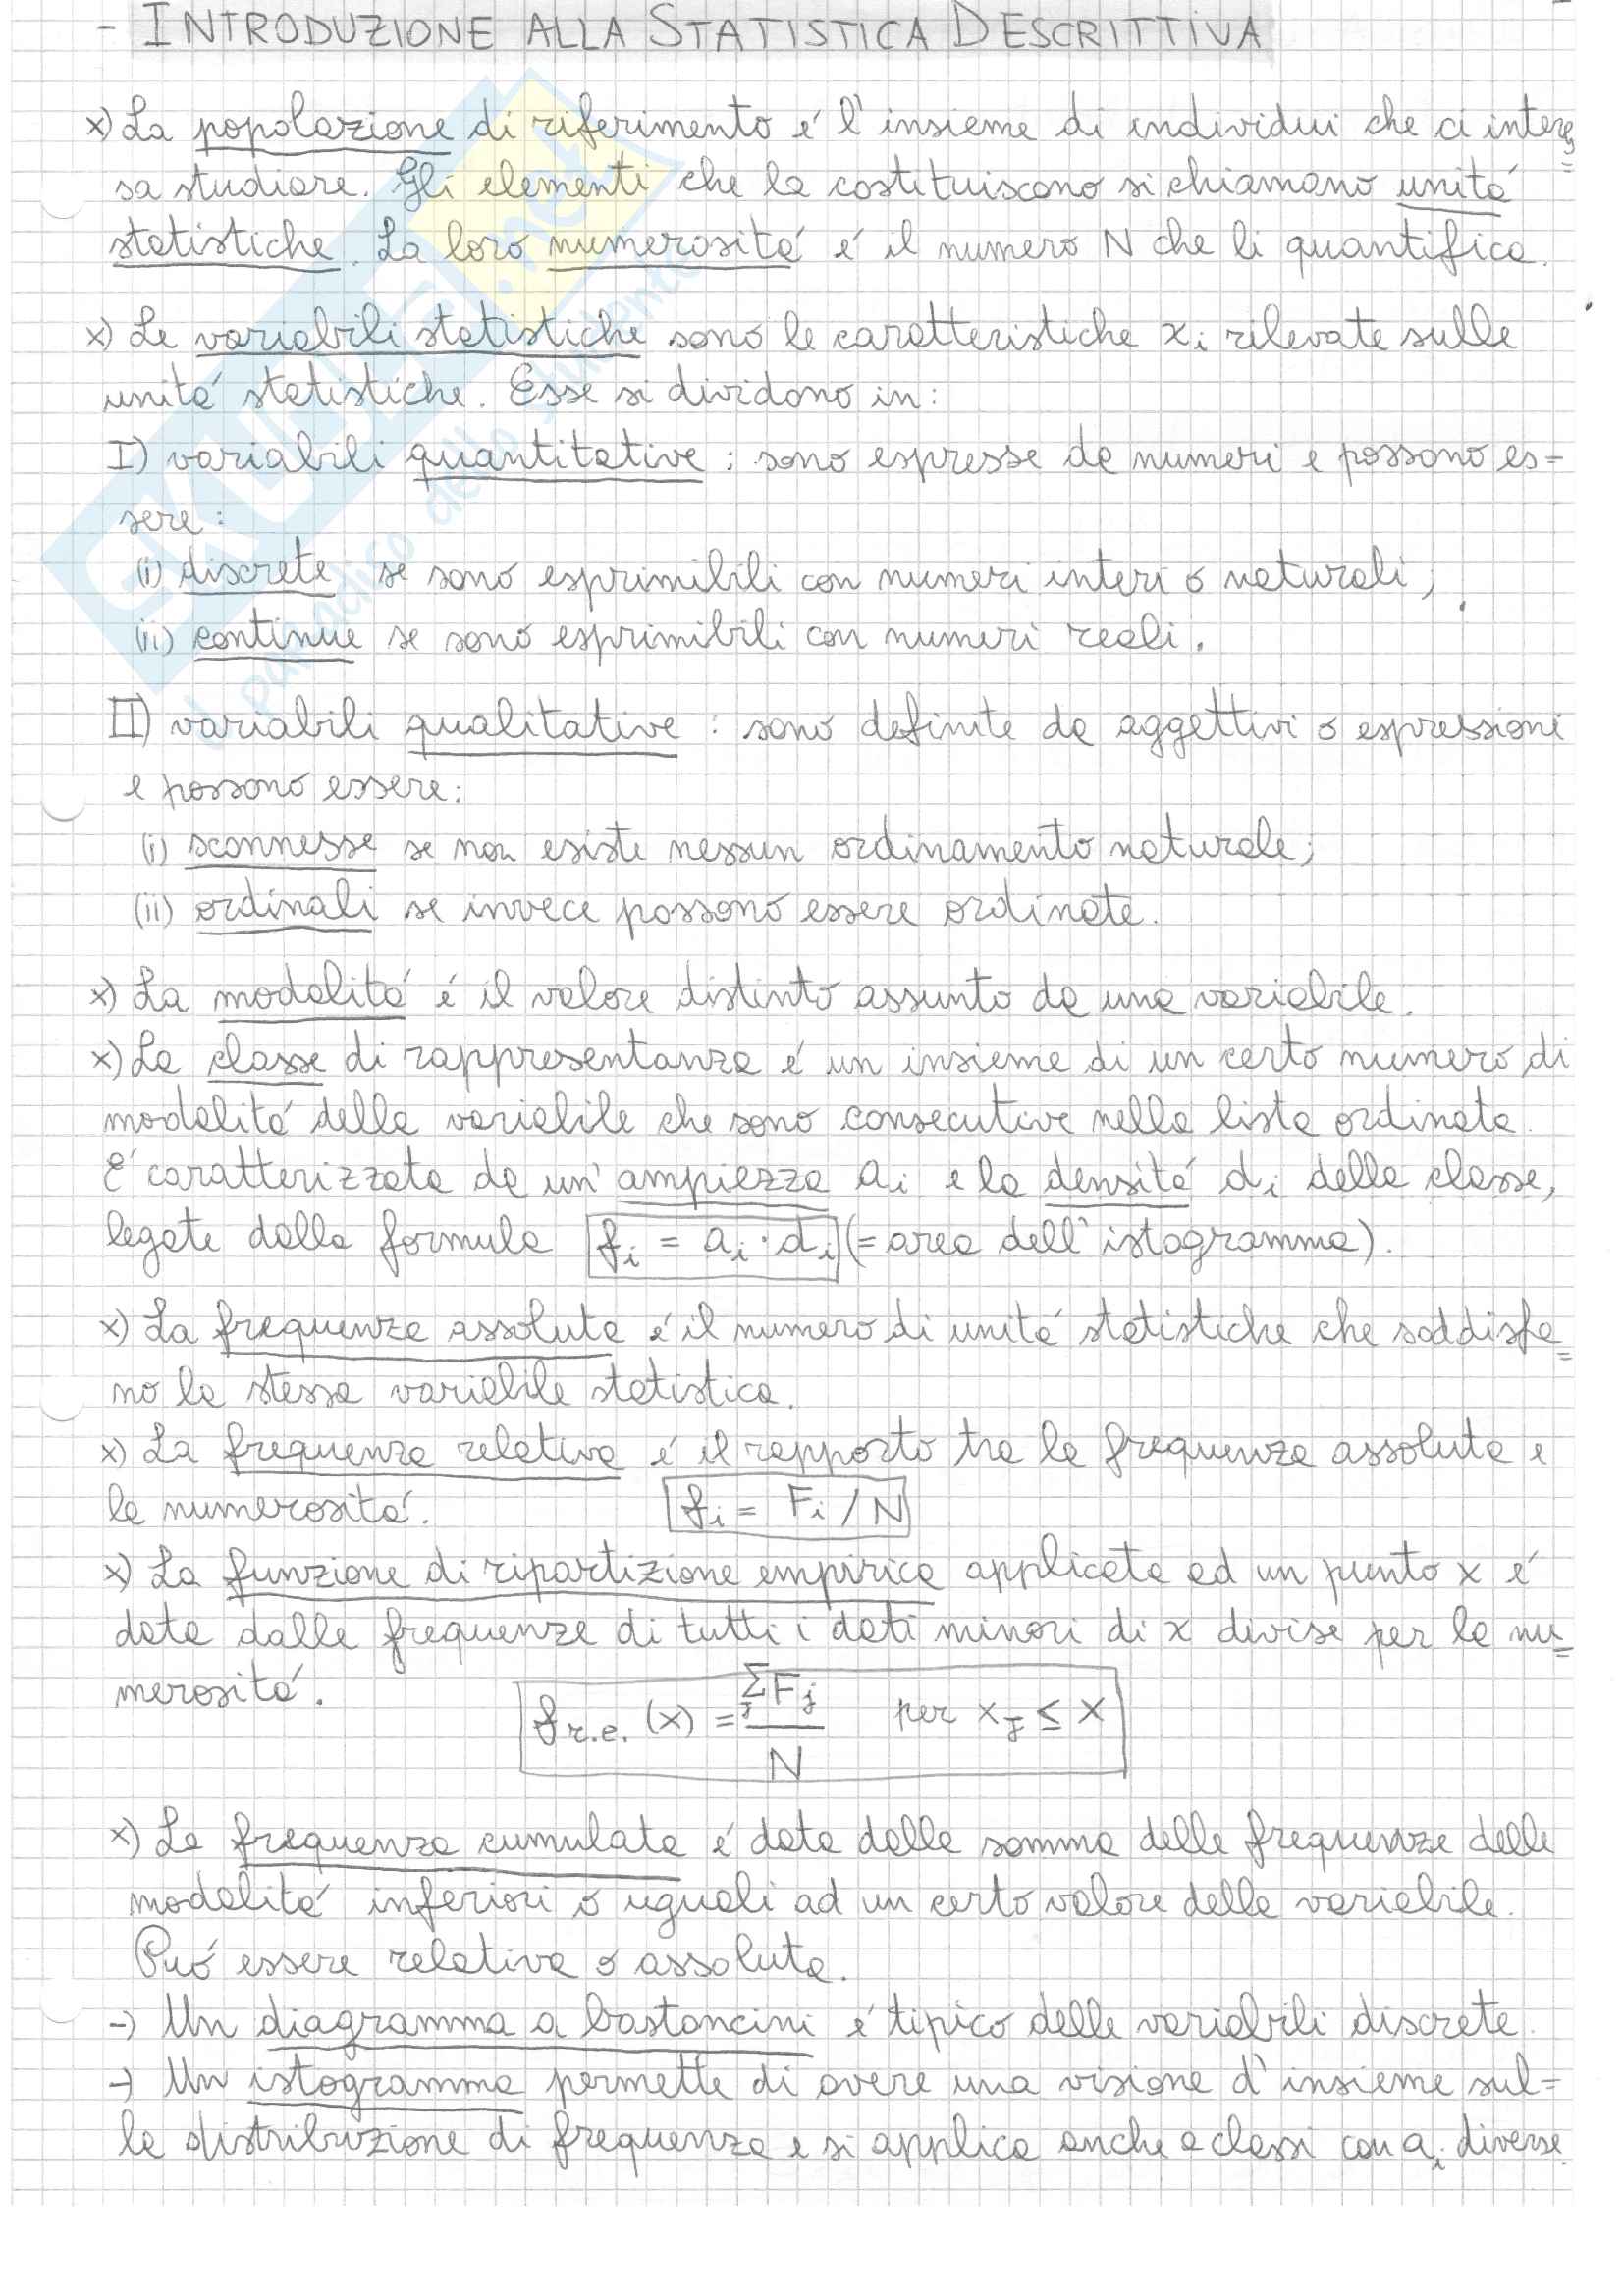 - INTRODUZIONE ALLA STATISTICA DESCRITTIVA
x) La popolazione di riferimento é l'insieme di individui che ci interes=
sa studiare. Gli elementi che la costituiscono si chiamano unitá
statistiche. La loro numerositá é il numero N che li quantifica.
x) Le variabili statistiche sono le caratteristiche xi rilevate sulle
unitá statistiche. Esse si dividono in:
I) variabili quantitative: sono espresse da numeri e possono es=
sere:
(i) discrete se sono esprimibili con numeri interi o naturali;
(ii) continue se sono esprimibili con numeri reali.
II) variabili qualitative: sono definite da aggettivi o espressioni
e possono essere:
(i) sconnesse se non esiste nessun ordinamento naturale;
(ii) ordinali se invece possono essere ordinate.
x) La modalitá é il valore distinto assunto da una variabile.
x) La classe di rappresentanza é un insieme di un certo numero di
modalitá della variabile che sono consecutive nella lista ordinata.
É caratterizzata da un'ampiezza ai e la densitá di della classe,
legate dalla formula fi = ai · di (= area dell'istogramma).
x) La frequenza assoluta é il numero di unitá statistiche che soddisfa=
no la stessa variabile statistica.
x) La frequenza relativa é il rapporto tra la frequenza assoluta e
la numerositá. fi = Fi / N
x) La funzione di ripartizione empirica applicata ad un punto x é
data dalle frequenze di tutti i dati minori di x divise per la nu=
merositá.
fr.e. (x) = Σj Fj / N per xj ≤ x
x) La frequenza cumulata é data dalla somma delle frequenze delle
modalitá inferiori o uguali ad un certo valore della variabile.
Puó essere relativa o assoluta.
→ Un diagramma a bastoncini é tipico delle variabili discrete.
→ Un istogramma permette di avere una visione d'insieme sul=
la distribuzione di frequenza e si applica anche a classi con ai diverse.
SKUOLA.net
il paradiso dello studente